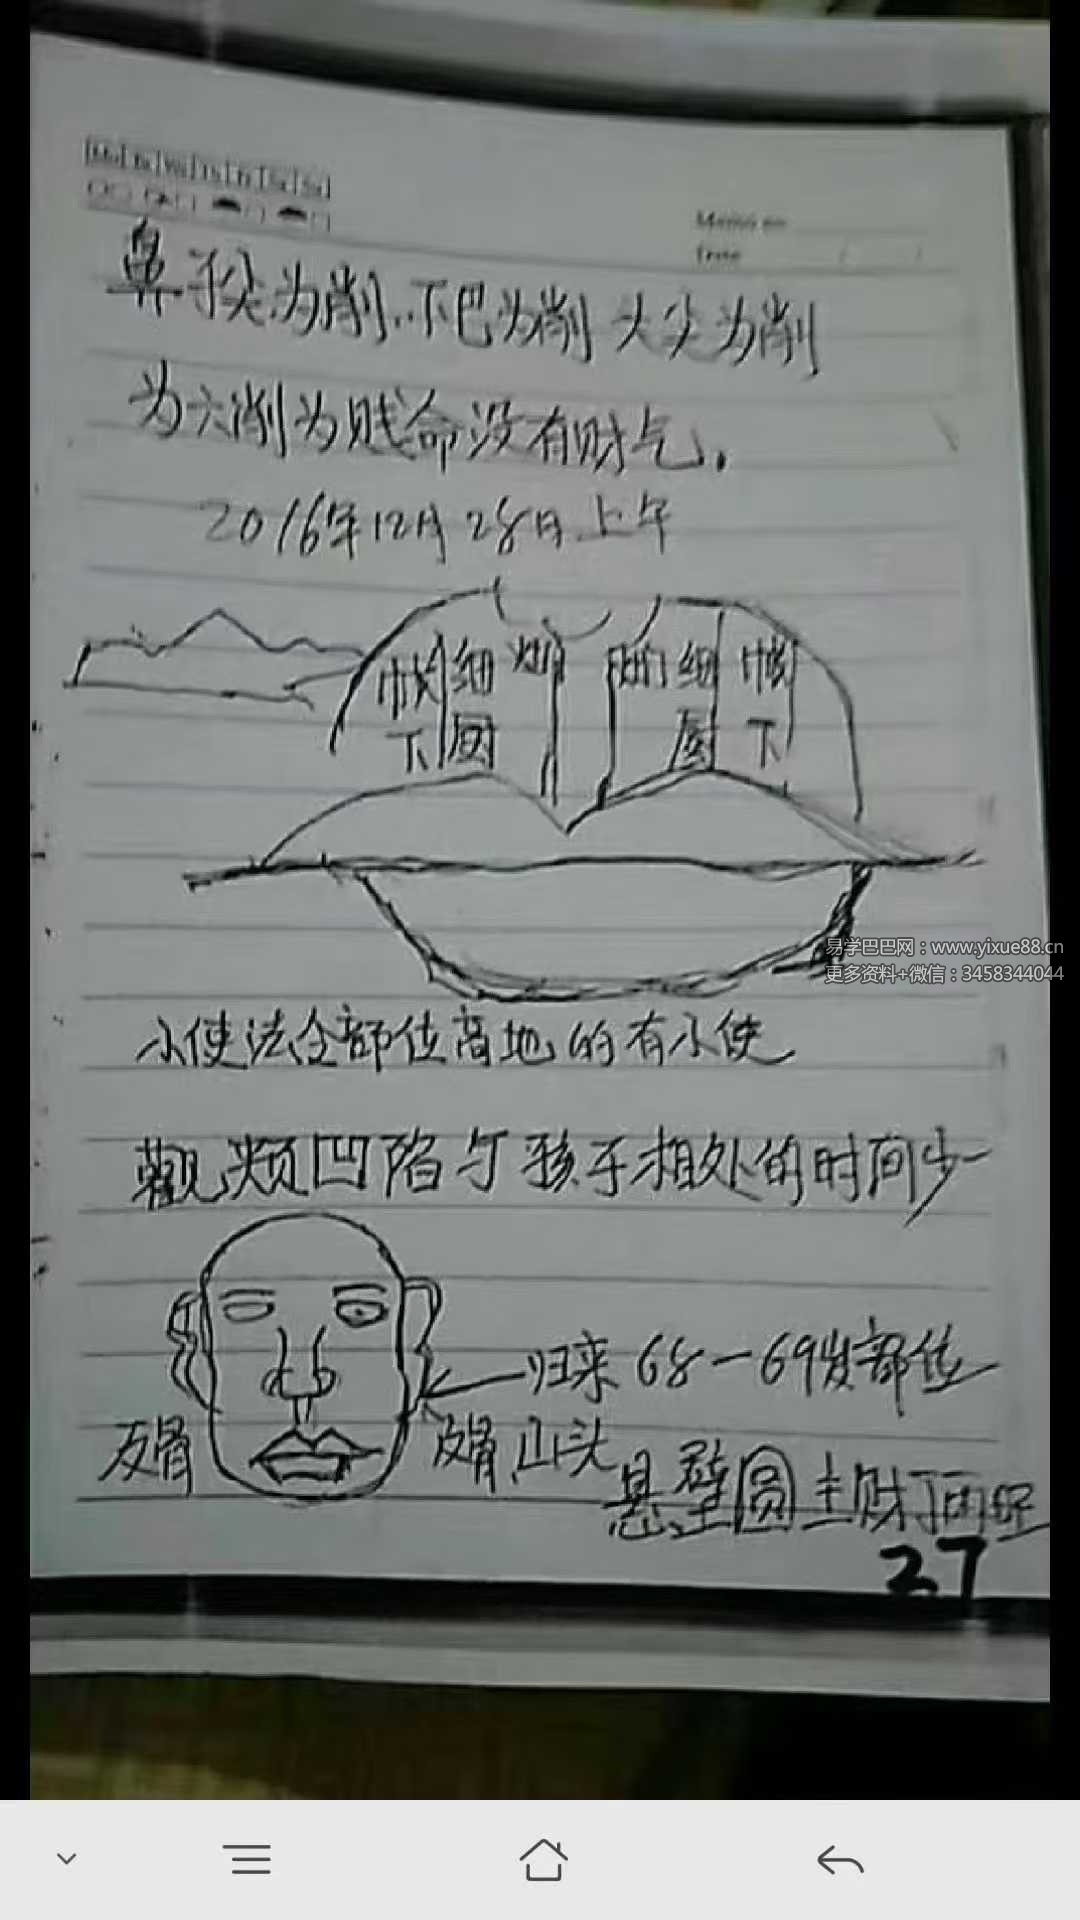 Memo no.
Date / /
鼻子尖为削..下巴为削 头尖为削
为六削为贱命没有财气.
2016年12月28日上午
帐 细 灶 细 帐
下 厨 厨 下
易学巴巴网：www.yixue88.cn
更多资料+微信：3458344044
小使法全部位高地的有小使
觀颊凹陷与孩子相处的时间少
归来 68-69岁部位
反骨 反骨 山头
悬壁圆主财丁两旺
27